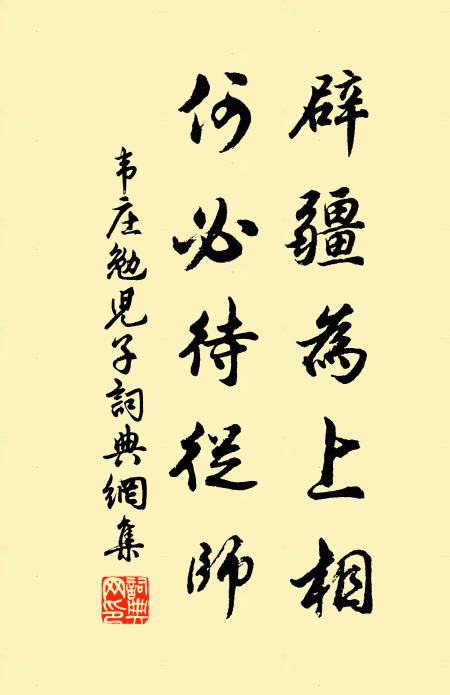 辟疆為上相
何必待從師
韦庄勉児子詞典網集
詞典网印